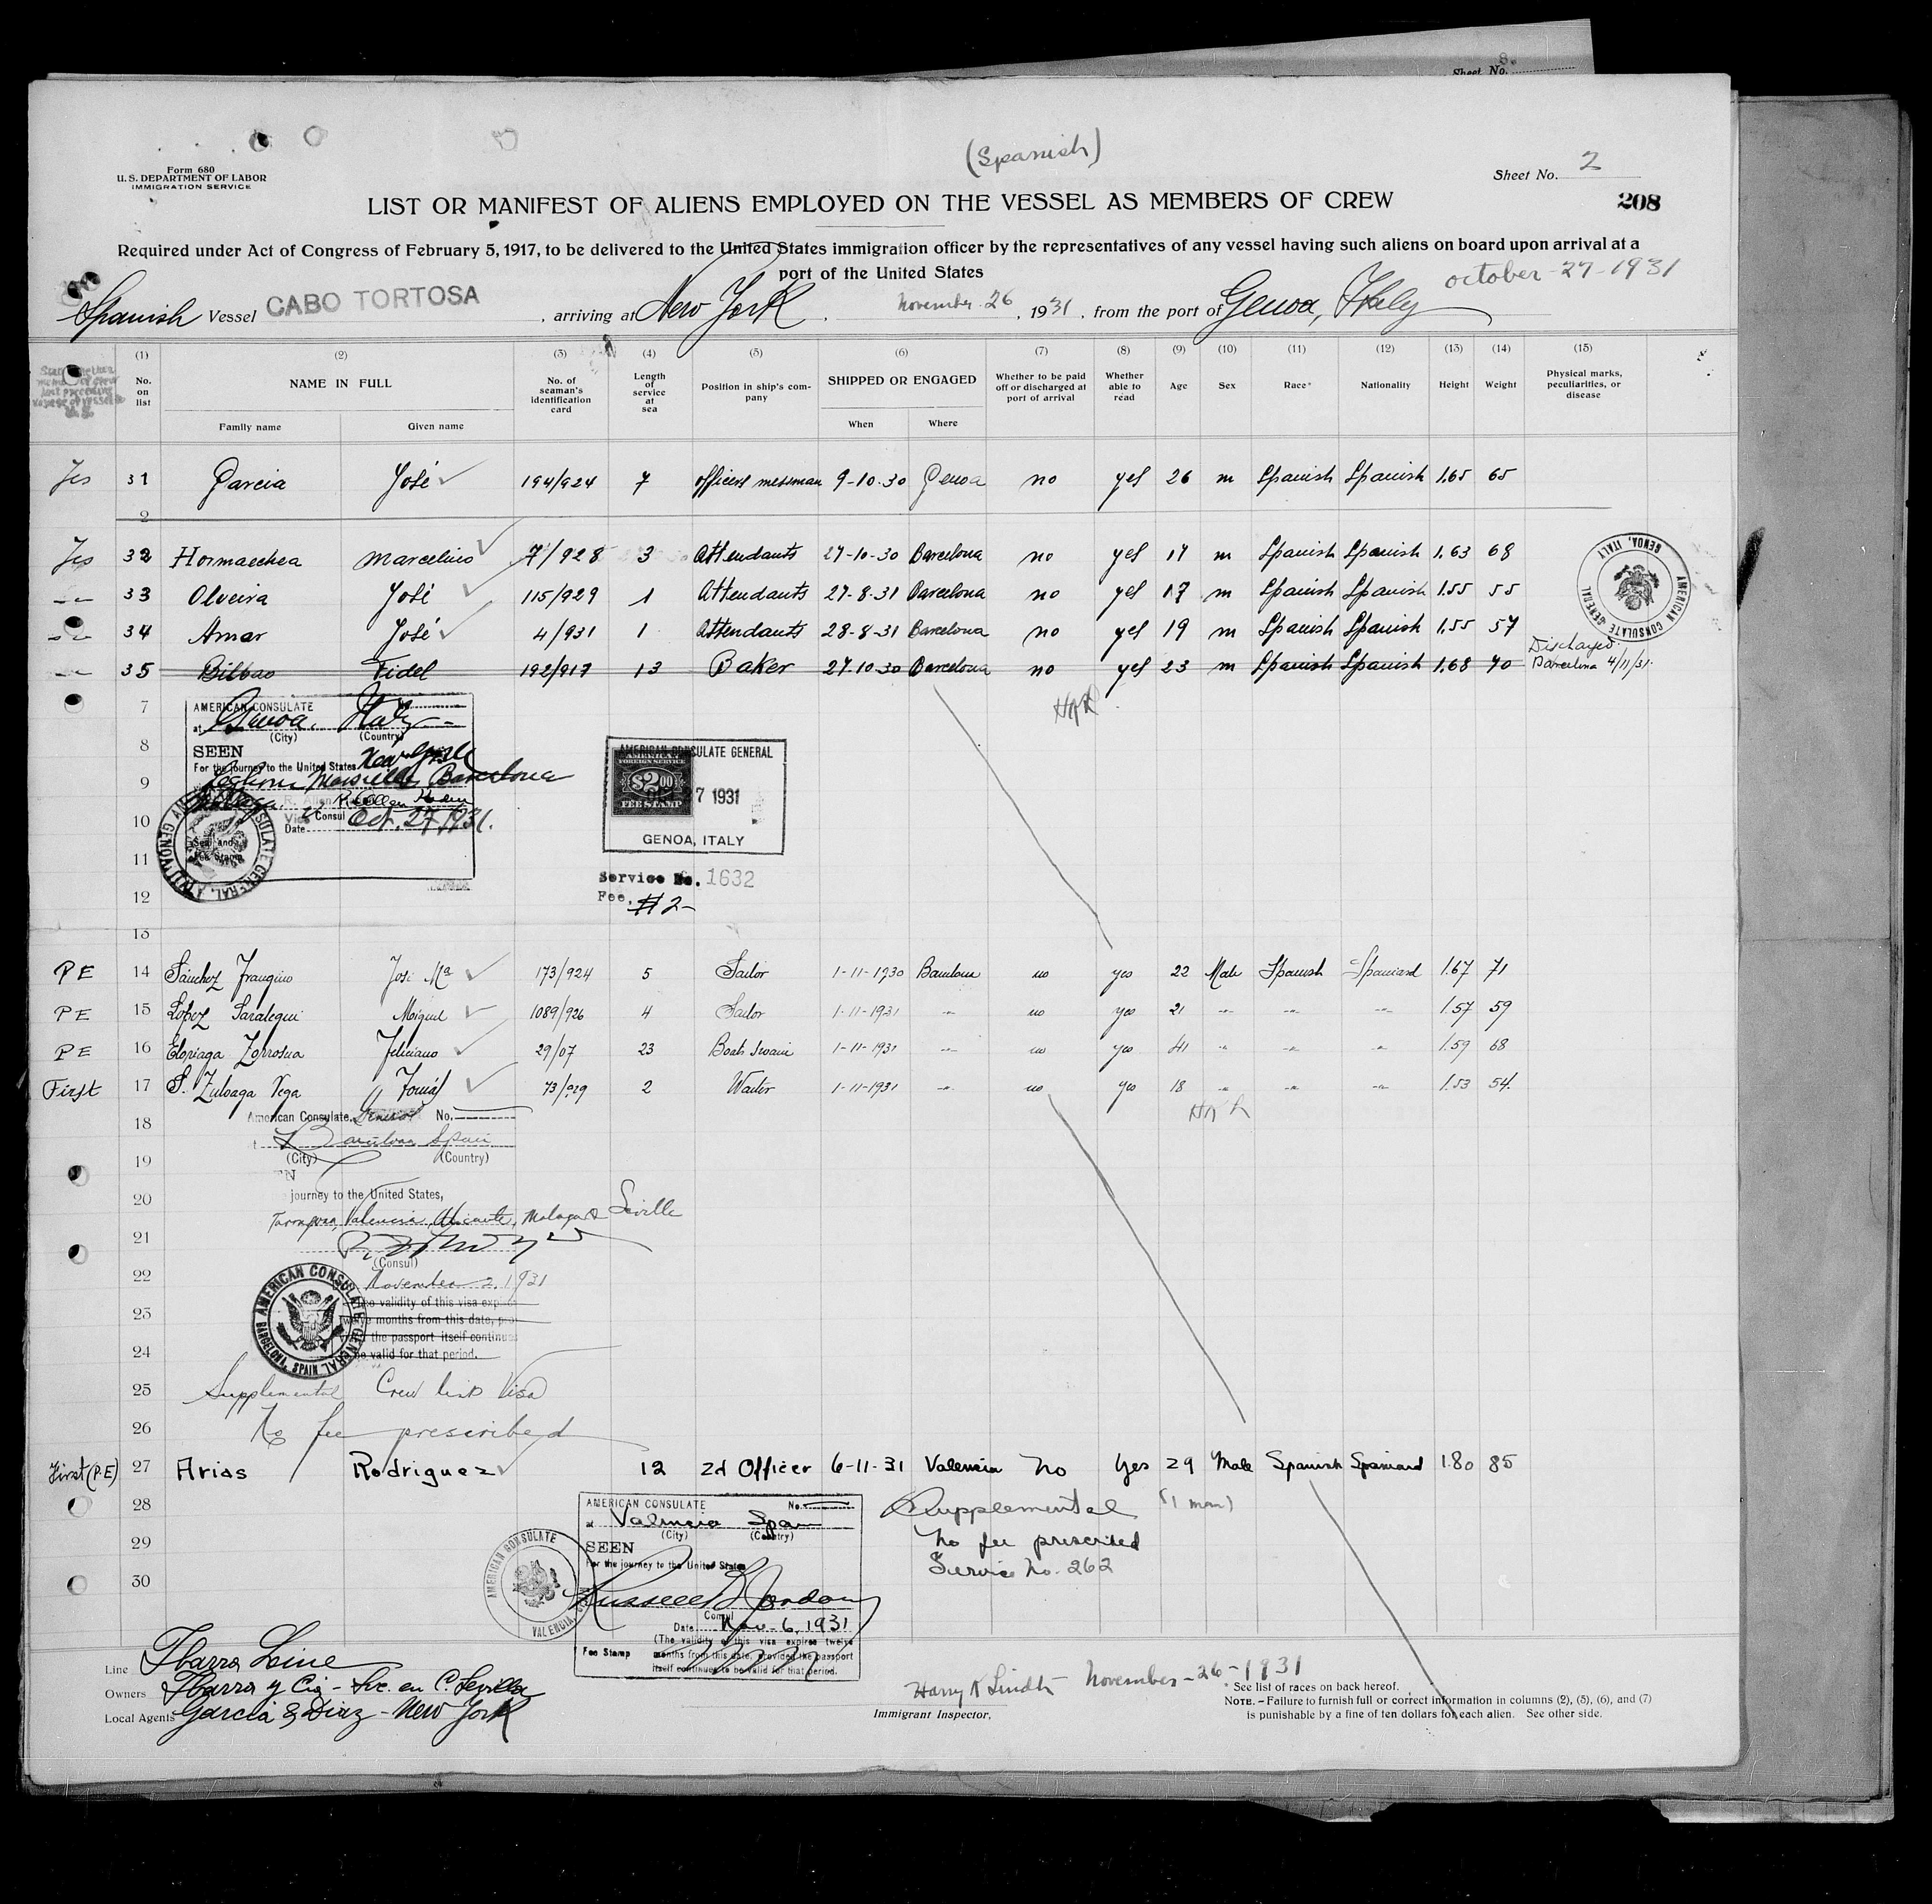 Sheet No. 8.
(Spanish)
Form 680
U. S. DEPARTMENT OF LABOR
IMMIGRATION SERVICE
Sheet No. 2
LIST OR MANIFEST OF ALIENS EMPLOYED ON THE VESSEL AS MEMBERS OF CREW
208
Required under Act of Congress of February 5, 1917, to be delivered to the United States immigration officer by the representatives of any vessel having such aliens on board upon arrival at a
port of the United States
october-27-1931
Spanish Vessel CABO TORTOSA, arriving at New York. November 26, 1931, from the port of Genoa, Italy
(1) (2) (3) (4) (5) (6) (7) (8) (9) (10) (11) (12) (13) (14) (15)
No. on list NAME IN FULL No. of seaman's identification card Length of service at sea Position in ship's company SHIPPED OR ENGAGED Whether to be paid off or discharged at port of arrival Whether able to read Age Sex Race* Nationality Height Weight Physical marks, peculiarities, or disease
Family name Given name When Where
Yes 31 Garcia José 194/924 7 officers messman 9-10-30 Genoa no yes 26 m Spanish Spanish 1.65 65
2
Yes 32 Hormaechea Marcelino 7/928 3 Attendants 27-10-30 Barcelona no yes 17 m Spanish Spanish 1.63 68
33 Olveira José 115/929 1 Attendants 27-8-31 Barcelona no yes 17 m Spanish Spanish 1.55 55
34 Amar José 4/931 1 Attendants 28-8-31 Barcelona no yes 19 m Spanish Spanish 1.55 57
35 Bilbao Fidel 192/917 13 Baker 27.10-30 Barcelona no yes 23 m Spanish Spanish 1.68 70 Discharged Barcelona 4/11/31.
AMERICAN CONSULATE GENERAL GENOA, ITALY
7
AMERICAN CONSULATE
at Genoa, Italy
(City) (Country)
8
SEEN
For the journey to the United States New York
9
Leghorn Marseille Barcelona
Malaga
10
Vice Consul
Date Oct. 27, 1931.
Seal and Fee Stamp
AMERICAN CONSULATE GENERAL, GENOA, ITALY
AMERICAN CONSULATE GENERAL
AMERICAN FOREIGN SERVICE
$2.00
FEE STAMP
OCT 27 1931
GENOA, ITALY
11
Service No. 1632
Fee. $2-
12
13
PE 14 Sánchez Franquino José Mª 173/924 5 Sailor 1-11-1930 Barcelona no yes 22 Male Spanish Spaniard 1.67 71
PE 15 López Saralegui Miguel 1089/926 4 Sailor 1-11-1931 no yes 21 1.57 59
PE 16 Elopiaga Zorrosua Feliciano 29/07 23 Boats swain 1-11-1931 no yes 41 1.59 68
First 17 S. Zuloaga Vega Tomás 73/929 2 Waiter 1-11-1931 no yes 18 1.53 54.
18
American Consulate General No.
Barcelona Spain
19
(City) (Country)
20
journey to the United States,
Tarragona, Valencia, Alicante, Malaga & Seville
21
(Consul)
22
November 2, 1931
23
The validity of this visa expires
twelve months from this date, pro
the passport itself continues
24
be valid for that period.
AMERICAN CONSULATE GENERAL BARCELONA, SPAIN
25 Supplemental Crew list Visa
26 No fee prescribed
First (P.E) 27 Arias Rodriguez 12 2d Officer 6-11-31 Valencia No Yes 29 Male Spanish Spaniard 1.80 85
28
AMERICAN CONSULATE No.
at Valencia Spain
(City) (Country)
29
SEEN
For the journey to the United States
30
Russell B Jordan
Consul
Date Nov. 6, 1931
Fee Stamp
(The validity of this visa expires twelve
months from this date, provided the passport
itself continues to be valid for that period.
AMERICAN CONSULATE VALENCIA,
Supplemental (1 man)
No fee prescribed
Service No. 262
Line Ybarra Line
Owners Ybarra y Cia - Soc. en C. Sevilla
Local Agents Garcia & Diaz - New York
Harry K Lindh November-26-1931
Immigrant Inspector.
* See list of races on back hereof.
NOTE.—Failure to furnish full or correct information in columns (2), (5), (6), and (7)
is punishable by a fine of ten dollars for each alien. See other side.